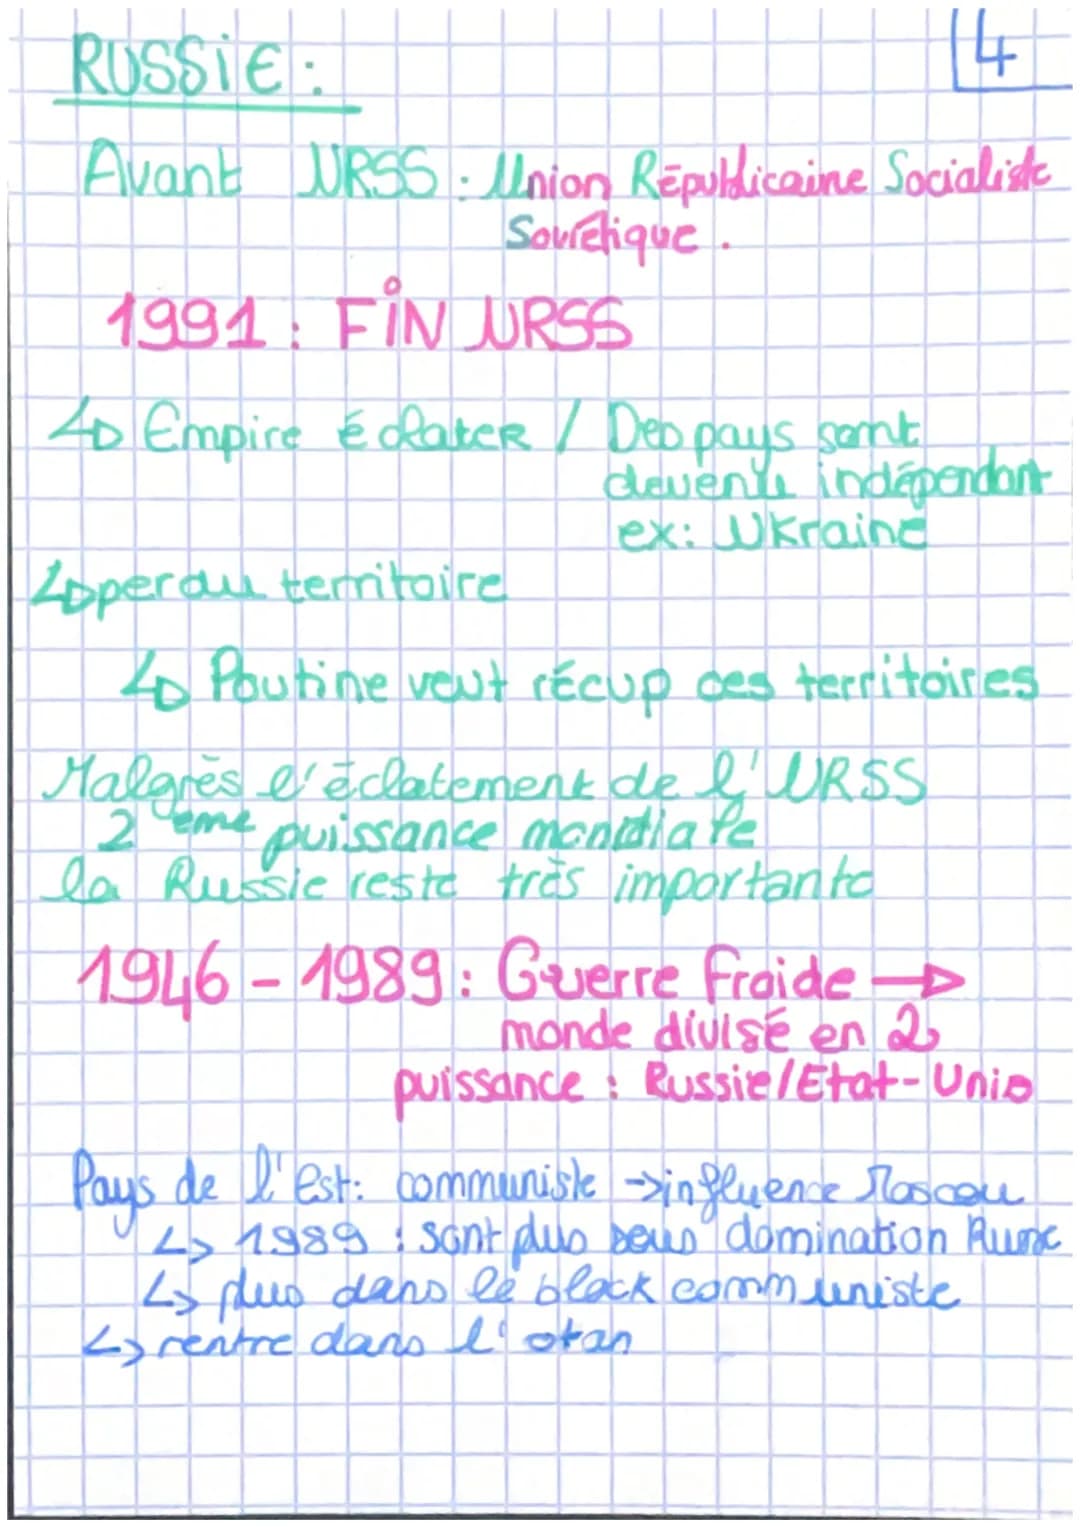 RUSSiE :
4
Avant URSS : Union Républicaine Socialiste
Soviétique .
1991 : FiN URSS
↳ Empire éclater / Des pays sont
devenu indépendant
ex: Ukraine
↳ perdu territoire
↳ Poutine veut récup ces territoires
Malgrès l'éclatement de l'URSS
2 ème puissance mondiale
la Russie reste très importante
1946 - 1989 : Guerre froide →
monde divisé en 2
puissance : Russie/Etat-Unis
Pays de l'Est: communiste → influence Moscou
↳ 1989 : sont plus sous domination Russe
↳ plus dans le block communiste
↳ rentre dans l'otan